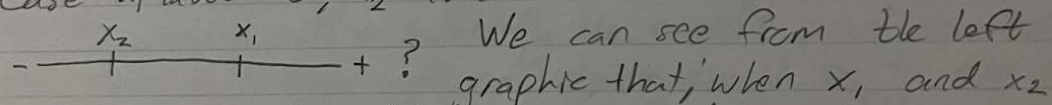 x₂ x₁ We can see from the left
- + ? graphic that, when x₁ and x₂